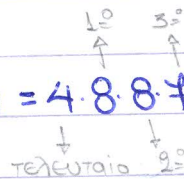 1º 3º
= 4. 8. 8. 7
τελευταίο 2º